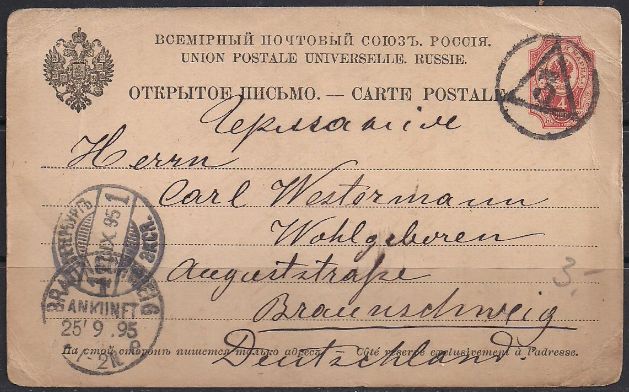 ВСЕМІРНЫЙ ПОЧТОВЫЙ СОЮЗЪ. РОССІЯ.
UNION POSTALE UNIVERSELLE. RUSSIE.
ОТКРЫТОЕ ПИСЬМО. — CARTE POSTALE
3
4
Германія
Herrn
Carl Westermann
Wohlgeboren
Auguststraße
Braunschweig
Deutschland.
3.-
1
IX 95
1
ANKUNFT
25 9 95
На этой сторонѣ пишется только адресъ. Côté réservé exclusivement à l'adresse.